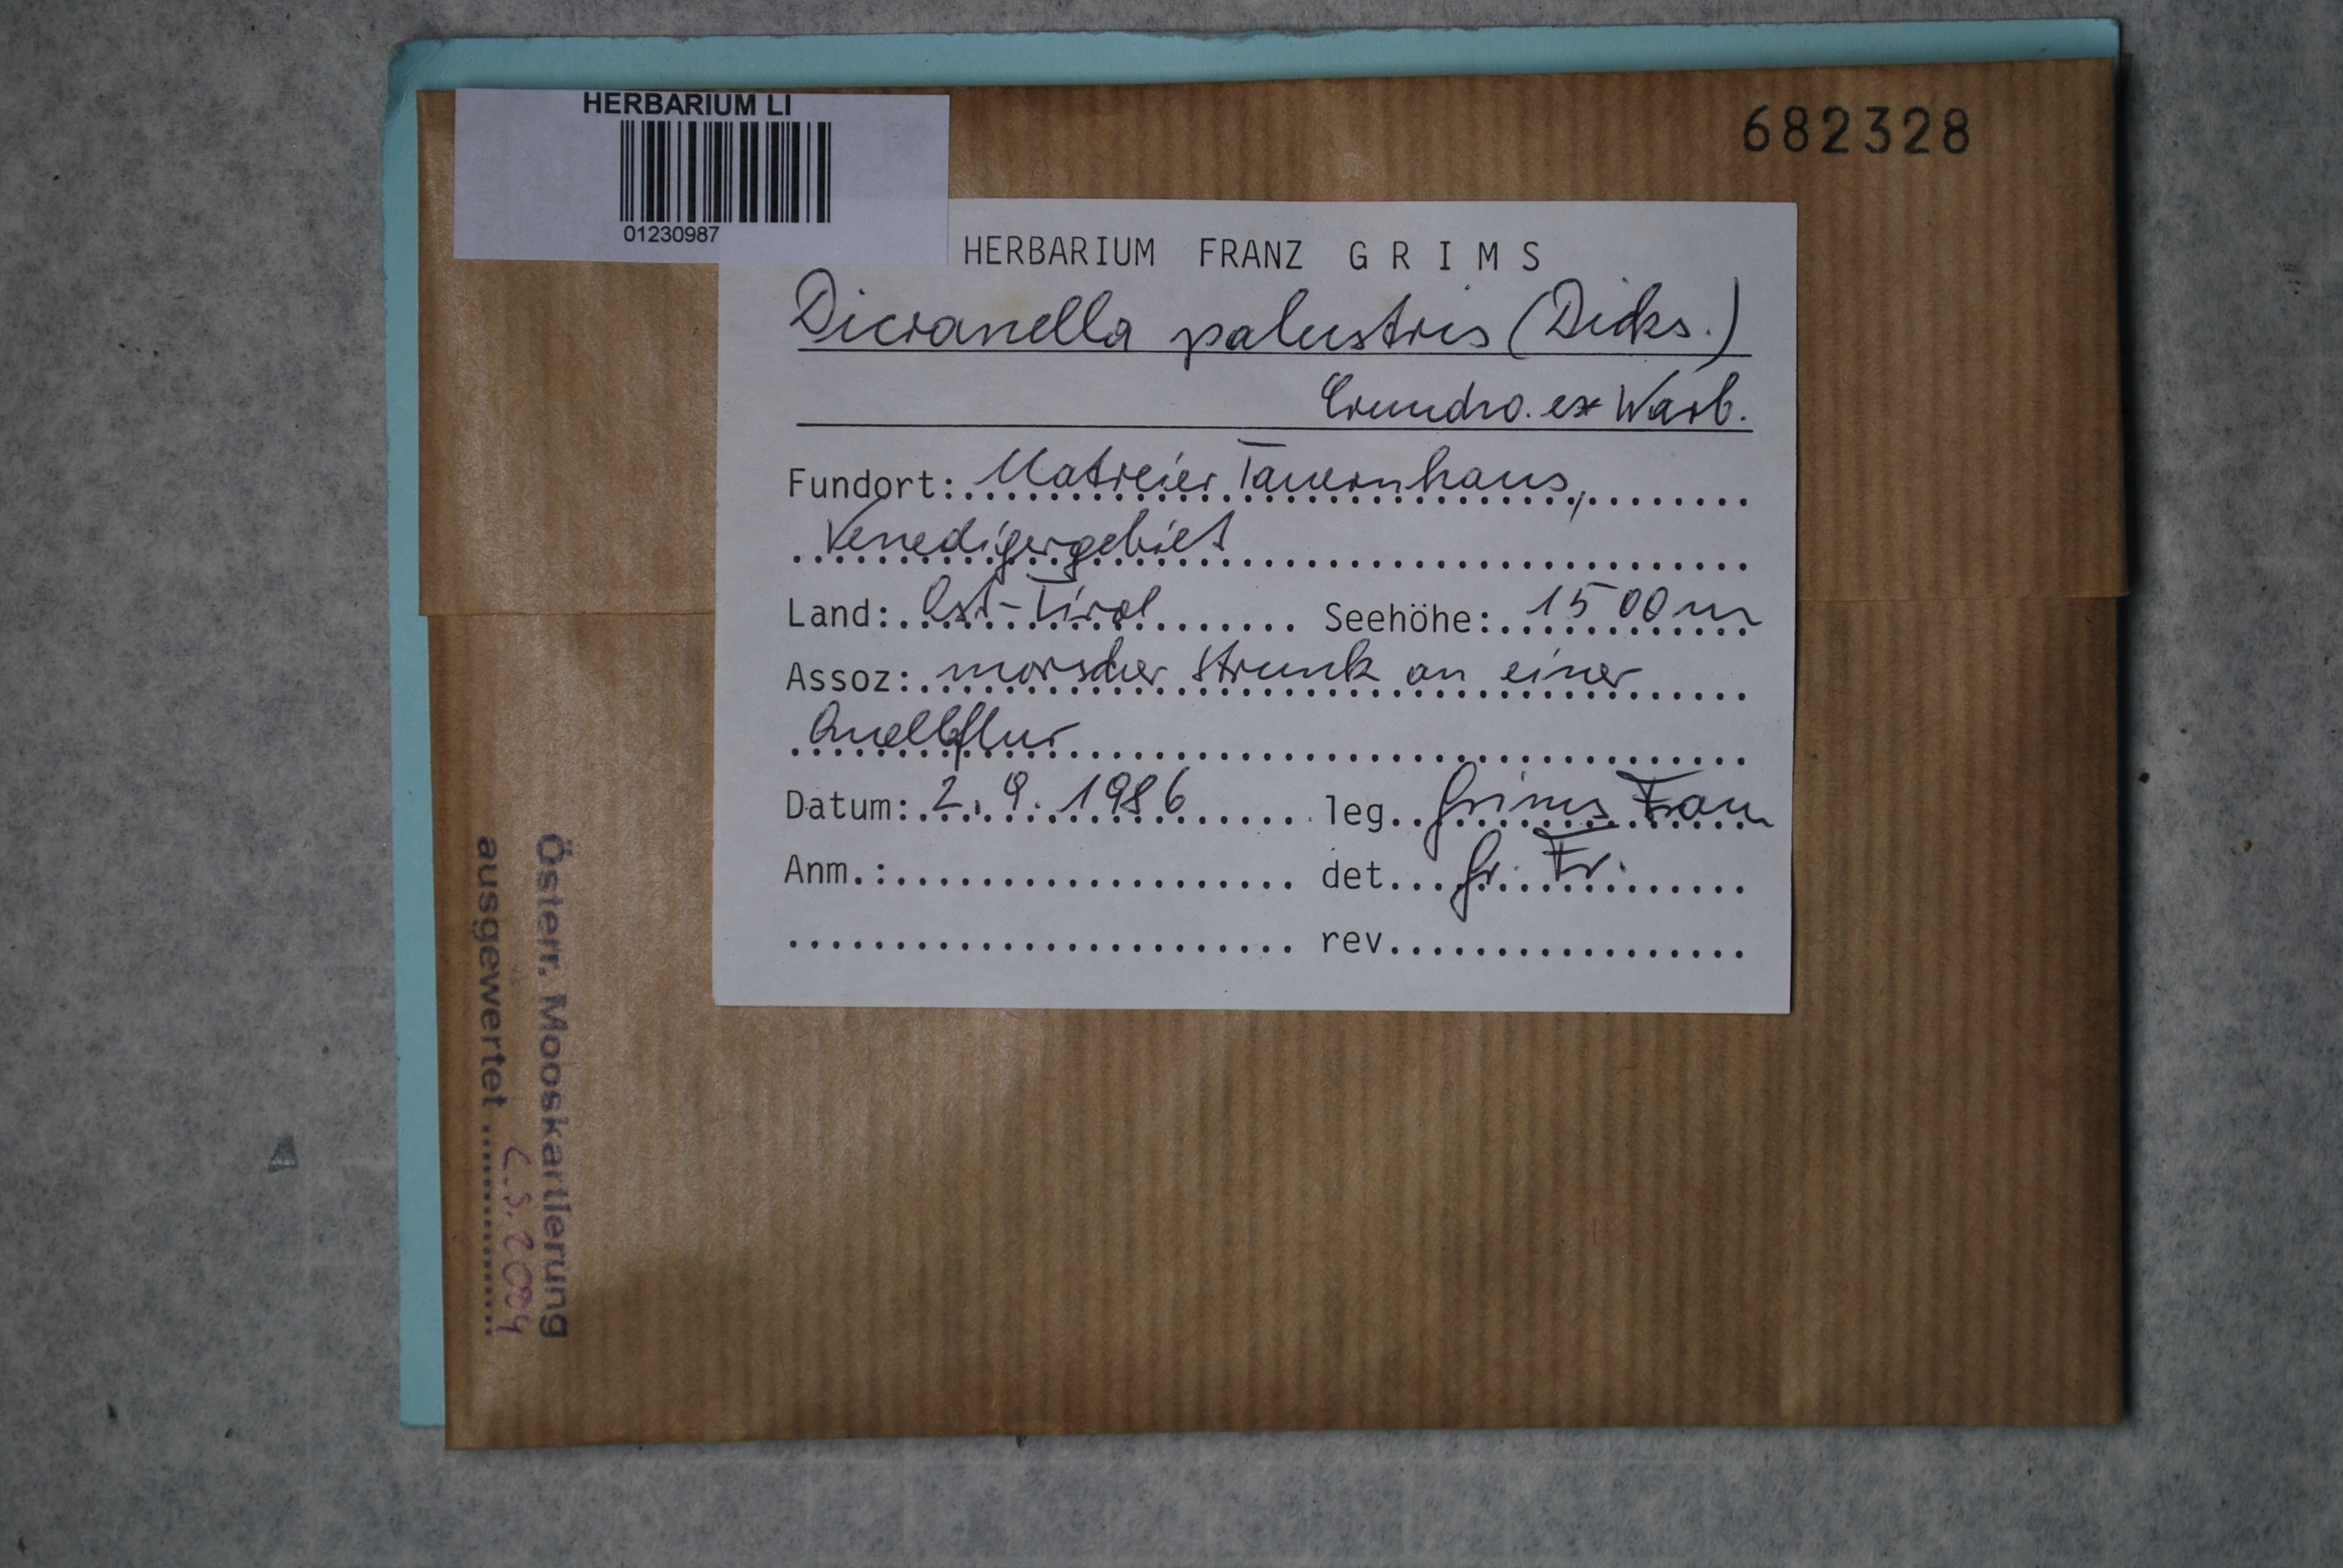 HERBARIUM LI
01230987
682328
HERBARIUM FRANZ GRIMS
Dicranella palustris (Dicks.)
Crundw. ex Warb.
Fundort: Matreier Tauernhaus,
Venedigergebiet
Land: Ost-Tirol Seehöhe: 1500m
Assoz: morscher Strunk an einer
Quellflur
Datum: 2.9.1986 leg. Grims Franz
Anm.: det. Gr. Fr.
rev.
Österr. Mooskartierung
ausgewertet